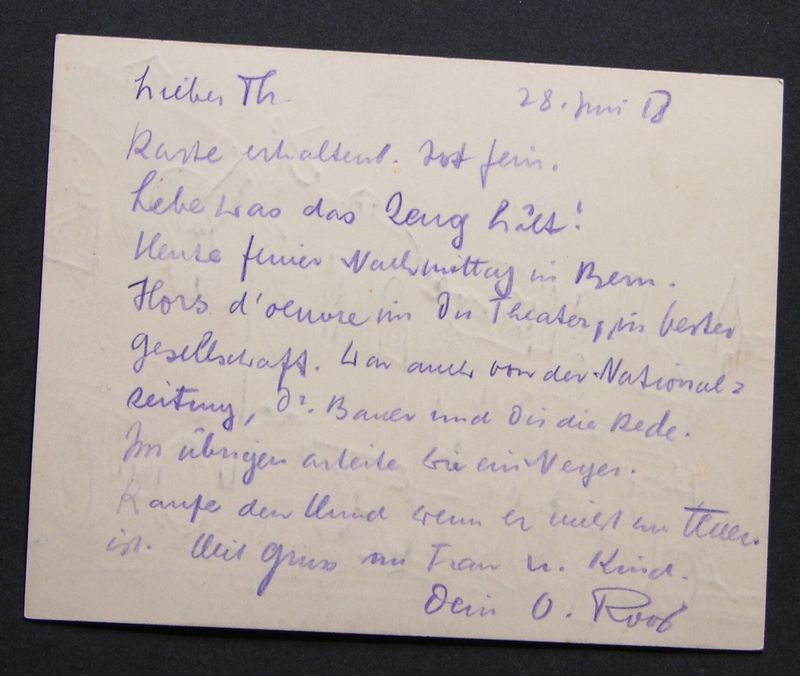 Lieber Th. 28. Juni 18
Karte erhalten. Ist fein.
Lebe was das Zeug hält!
Heute feiner Nachmittag in Bern.
Hors d'oeuvre im Du Theater, in bester
Gesellschaft. War auch von der National=
zeitung, Dr. Bauer und Dir die Rede.
Im übrigen arbeite wie ein Neger.
Kaufe den Hund wenn er nicht zu teuer
ist. Mit Gruss an Frau u. Kind.
Dein O.